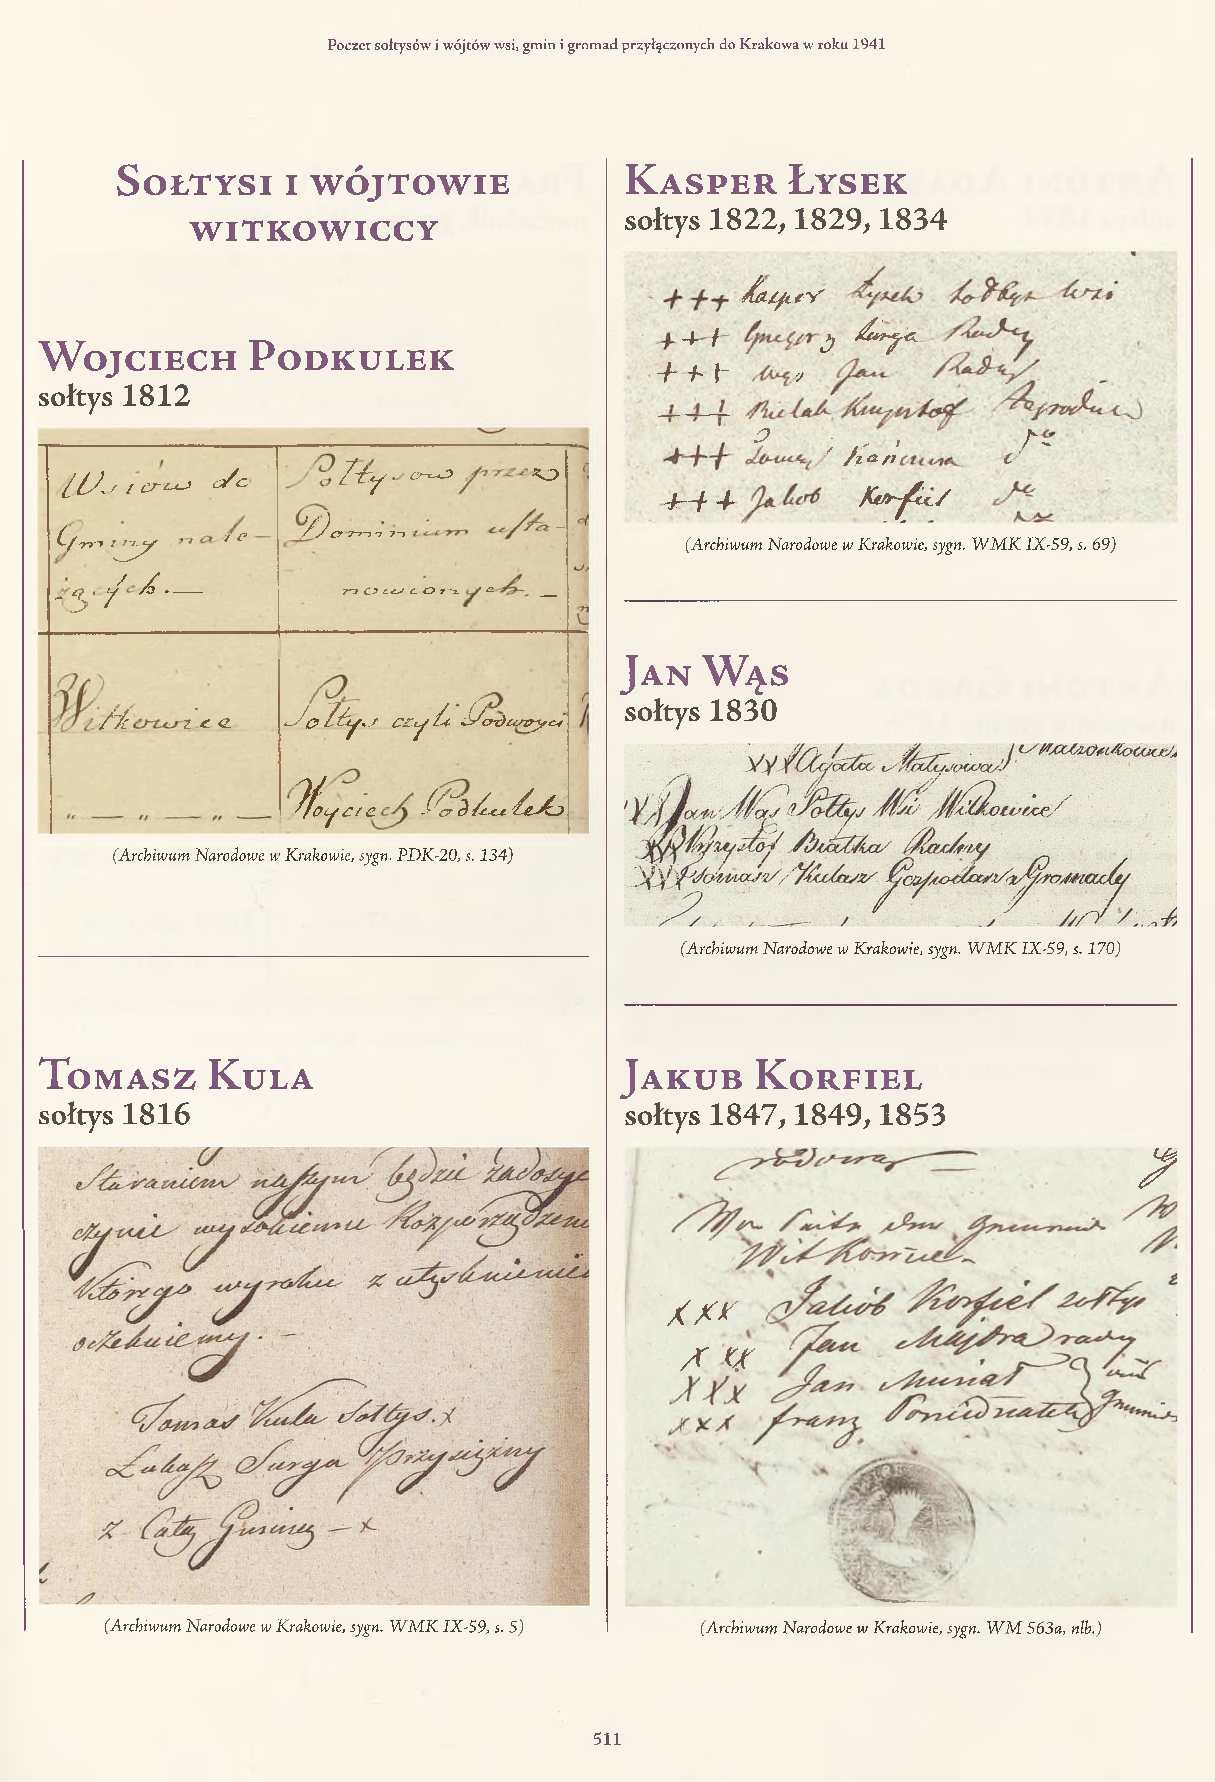 Poczet sołtysów i wójtów wsi, gmin i gromad przyłączonych do Krakowa w roku 1941
Sołtysi i wójtowie
witkowiccy
Wojciech Podkulek
sołtys 1812
Wsiów do
Gminy nale-
żących.—
Sołtysow przez
Dominium usta-
nowionych. —
Witkowice
Sołtys czyli Podwoyci
" — " — " —
Woyciech Podkulek
(Archiwum Narodowe w Krakowie, sygn. PDK-20, s. 134)
Tomasz Kula
sołtys 1816
Staraniem naszym będzie zadosyc
czynić wysokiemu Rozporządzeniu
Którego wyroku z
oczekuiemy. –
Tomas Kula Sołtys. x
Łukasz Surga Przysiężny
z Całą Gminą – x
(Archiwum Narodowe w Krakowie, sygn. WMK IX-59, s. 5)
Kasper Łysek
sołtys 1822, 1829, 1834
+++ Kasper Łysek sołtys wsi
+++ Grzegorz Surga Radny
+++ Wąs Jan Radny
+++ Bielak Krzysztof
+++ Tomasz Kańczura do
+++ Jakob Korfiel do
(Archiwum Narodowe w Krakowie, sygn. WMK IX-59, s. 69)
Jan Wąs
sołtys 1830
XXX Agata Małysowa
XX Jan Wąs Sołtys Wsi Witkowice
XXX Krzysztof Białka Radny
XXX Tomasz Kulasz Gospodarz z Gromady
(Archiwum Narodowe w Krakowie, sygn. WMK IX-59, s. 170)
Jakub Korfiel
sołtys 1847, 1849, 1853
Witkowice
xxx Jakób Korfiel sołtys
x xx Jan Majdra radny
xxx Jan Musiał
xxx franz Poniedziałek
(Archiwum Narodowe w Krakowie, sygn. WM 563a, nlb.)
511